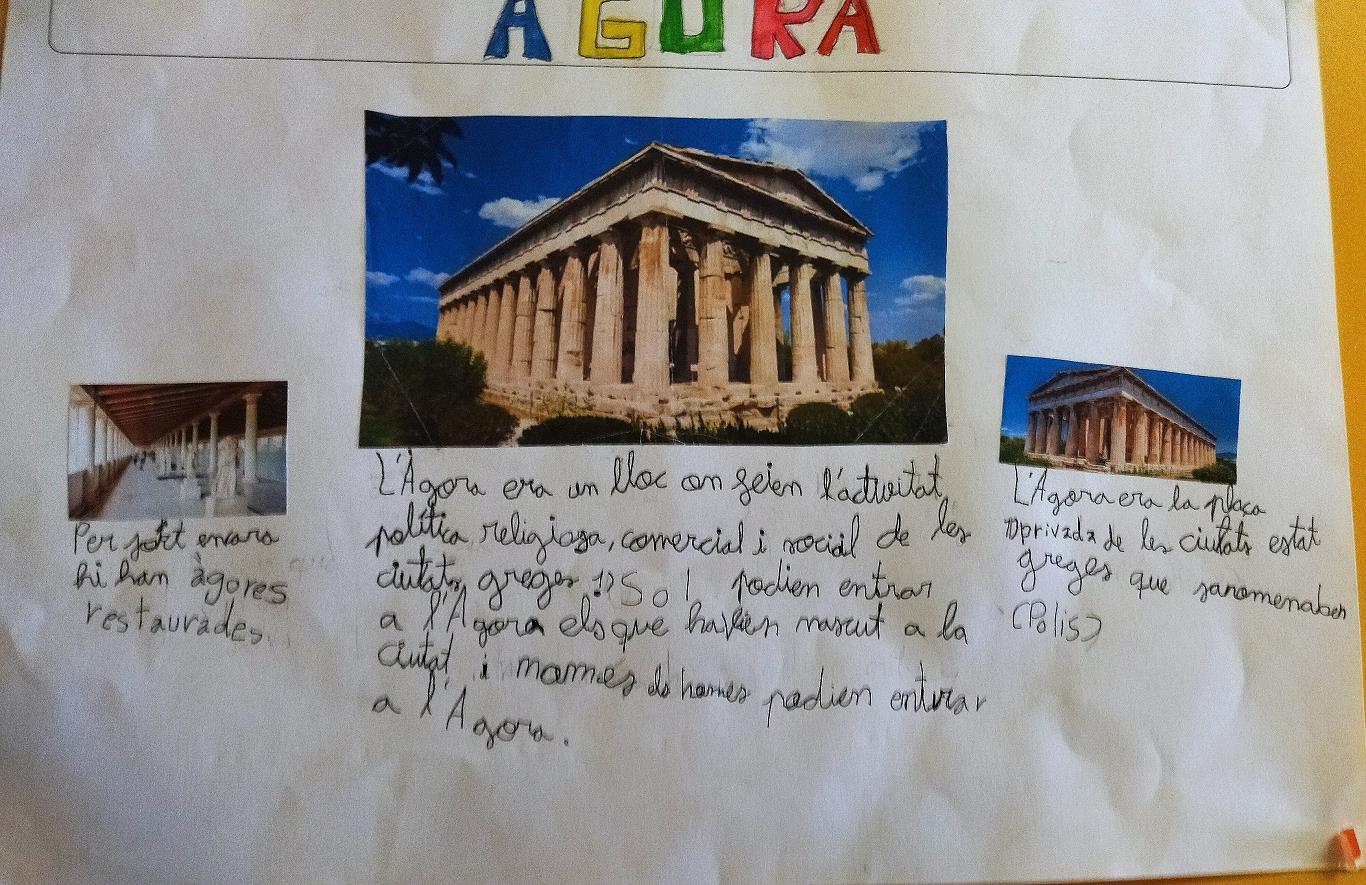 AGORA
Per sort encara
hi han àgores
restaurades.
L'Agora era un lloc on feien l'activitat
política religiosa, comercial i social de les
ciutats gregues. Sol podien entrar
a l'Agora els que havien nascut a la
ciutat i momes els homes podien entrar
a l'Agora.
L'Agora era la plaça
privada de les ciutats estat
greges que sanomenaben
(Polis)